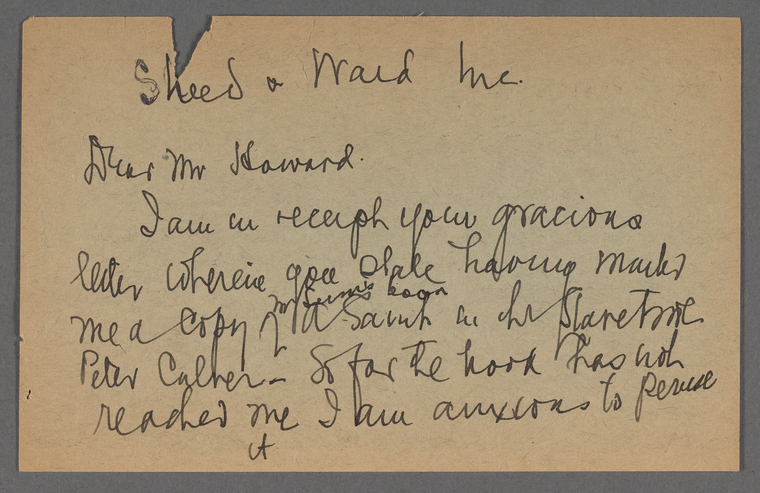 Sheed & Ward Inc.
Dear Mr Howard.
I am in receiph your gracious
letter wherein you state having mailed
me a copy of Mr Lunn's book A Saint in the Slave Trade
Peter Calver - So far the book has not
reached me I am anxious to peruse
it